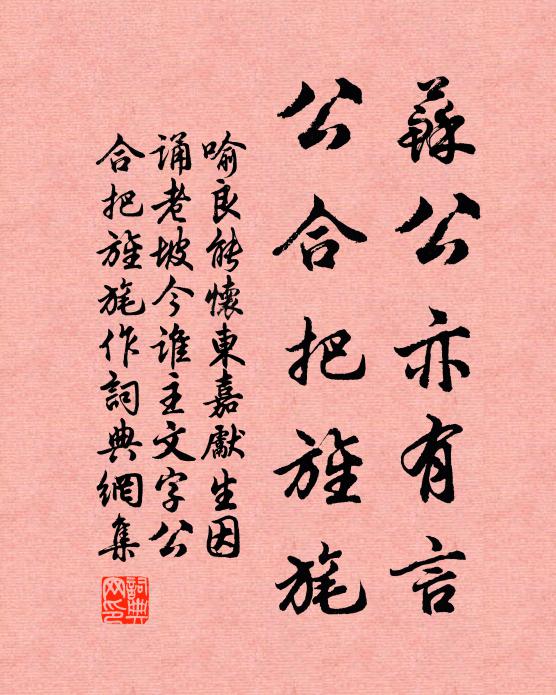 蘇公亦有言
公合把旌旄
喻良能懷東嘉獻生因
誦老坡今誰主文字公
合把旌旄作詞典網集
詞典網印